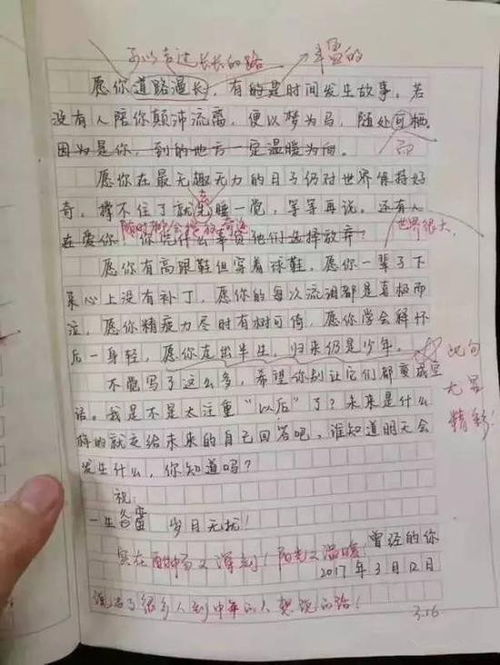 可以走过长长的路 丰富的
愿你道路漫长，有的是时间发生故事。若
没有人陪你颠沛流离，便以梦为马，随处可栖。
因为是你，到的地方一定温暖为向。 即
愿你在最无趣无力的日子仍对世界保持好
奇。撑不住了就先睡一觉，等等再说。还有人
在爱你 你凭什么辜负他们选择放弃？ 世界很大
愿你有高跟鞋但穿着球鞋，愿你一辈子下
来心上没有补丁，愿你的每次流泪都是喜极而
泣，愿你精疲力尽时有树可倚，愿你学会释怀
后一身轻，愿你走出半生，归来仍是少年。 此句
不觉写了这么多，希望你别让它们都变成空 尤显
话。我是不是太注重“以后”了？未来是什么 精彩
样的就交给未来的自己回答吧，谁知道明天会
发生什么，你知道吗？
祝：
一生 岁月无扰！
实在酣畅又深刻！阳光又温暖 曾经的你
2017年3月12日
说出了很多人到中年的人想说的话！
3.16